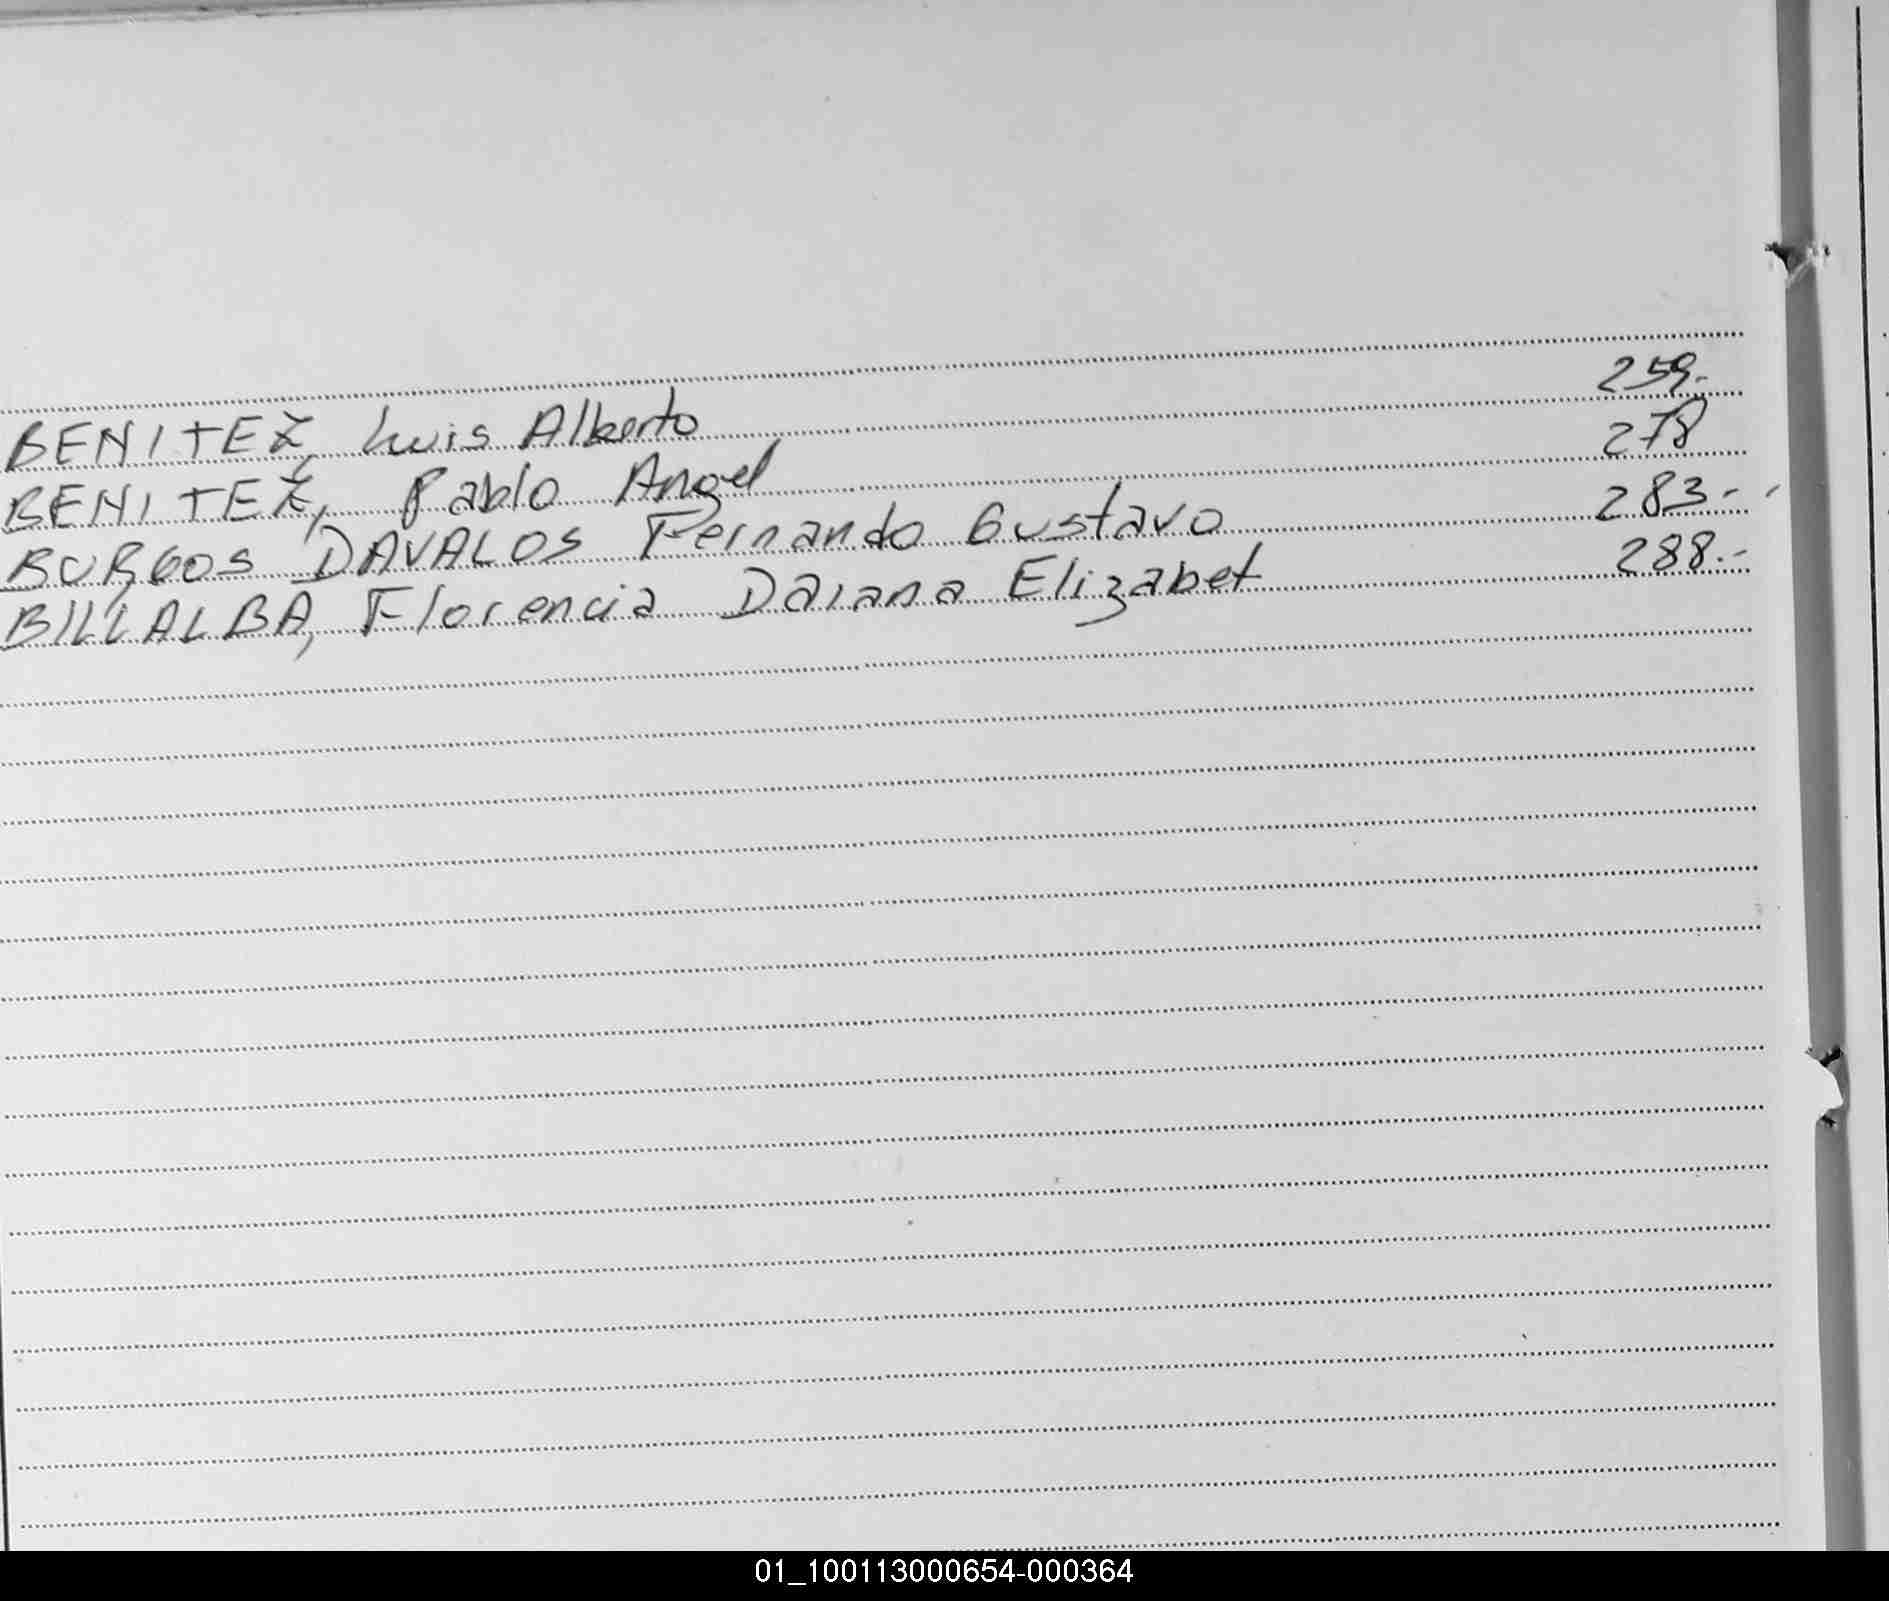 BENITEZ, Luis Alberto 259.-
BENITEZ, Pablo Angel 278
BURGOS DAVALOS Fernando Gustavo 283.-
BILLALBA, Florencia Daiana Elizabet 288.-
01_100113000654-000364